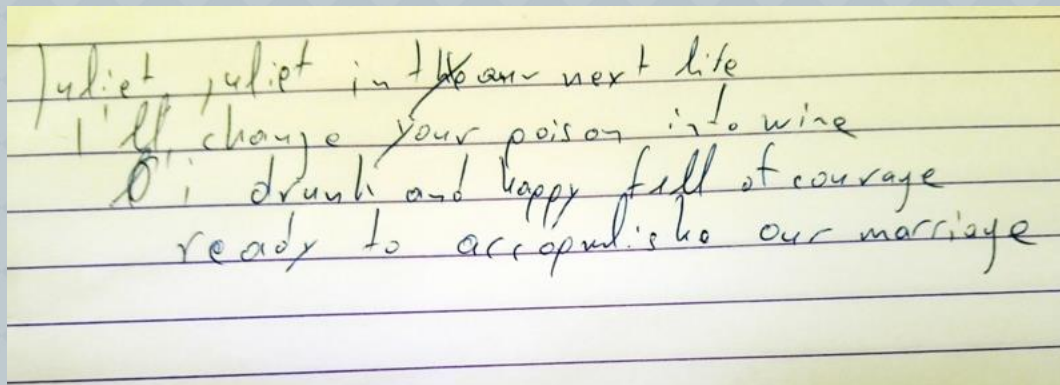 Juliet, juliet in our next life
I'll change your poison into wine
O i drunk and happy full of courage
ready to our marriage